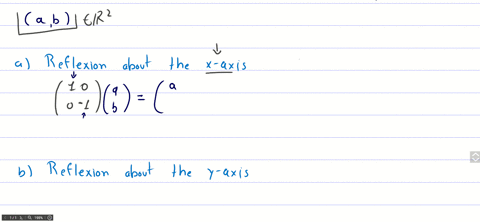 (a,b) ∈ ℝ²
a) Reflexion about the x-axis
(1 0
0 -1) (a
b) = (a
b) Reflexion about the y-axis